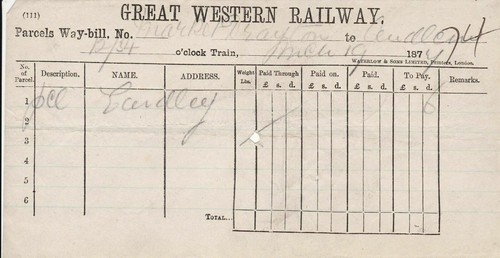 (111) GREAT WESTERN RAILWAY.
Parcels Way-bill, No. Market Drayton to
12/34 o'clock Train, March 19 187
WATERLOW & SONS LIMITED, Printers, London.
No. of Parcel. Description. NAME. ADDRESS. Weight Lbs. Paid Through £ s. d. Paid on. £ s. d. Paid. £ s. d. To Pay. £ s. d. Remarks.
1 pcl Eardley 6
2
3
4
5
6
TOTAL...